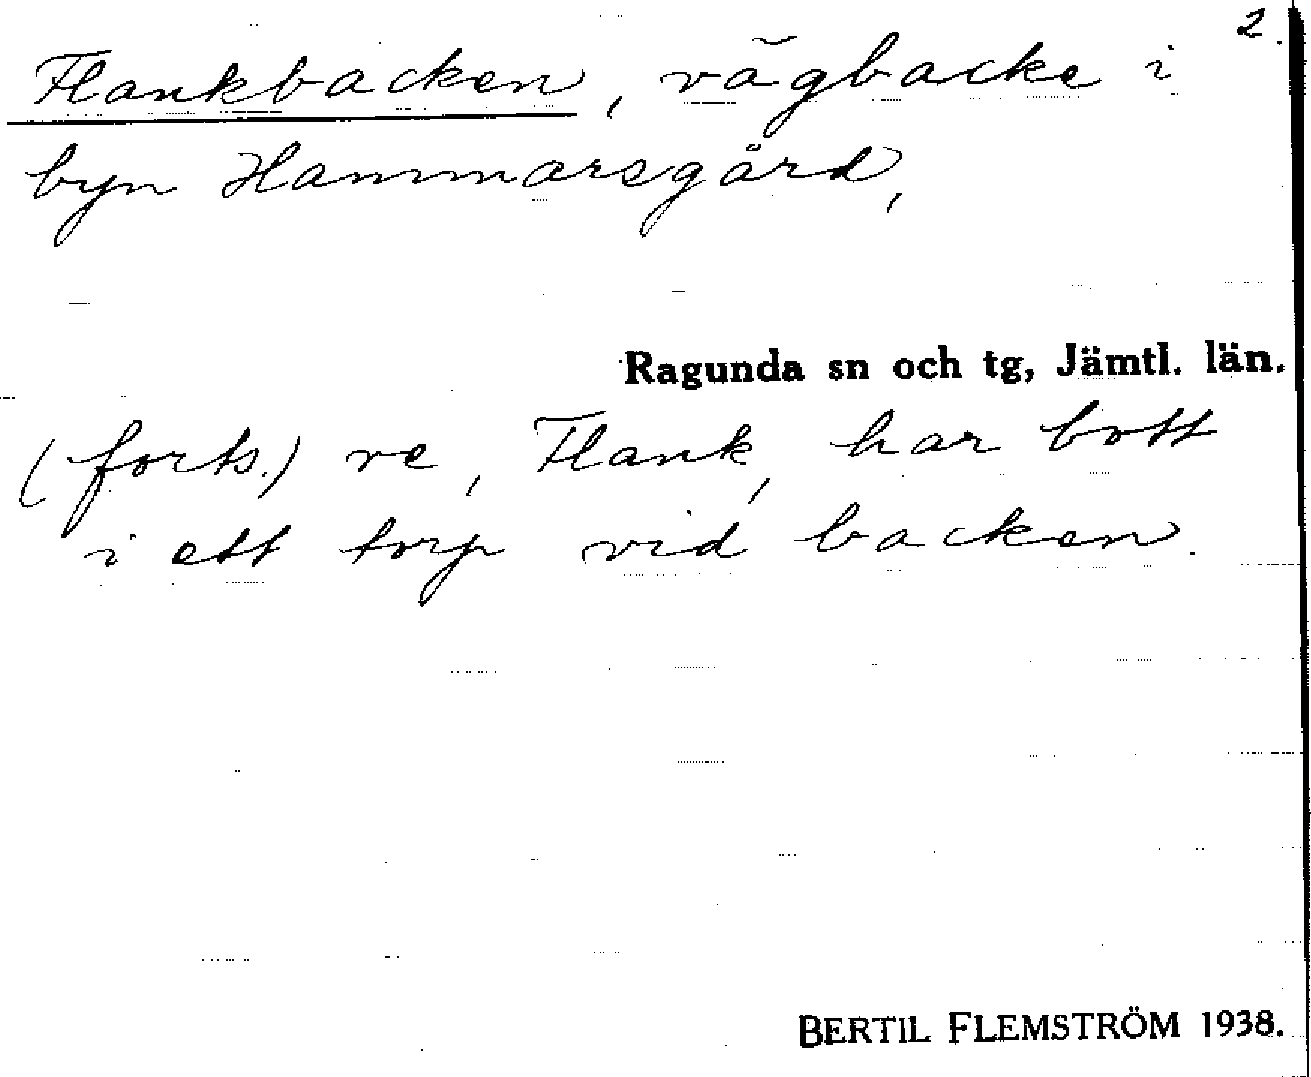 2.
Flankbacken, vägbacke i
byn Hammarsgård,
Ragunda sn och tg, Jämtl. län.
(forts.) re, Flank, har bott
i ett torp vid backen.
BERTIL FLEMSTRÖM 1938.